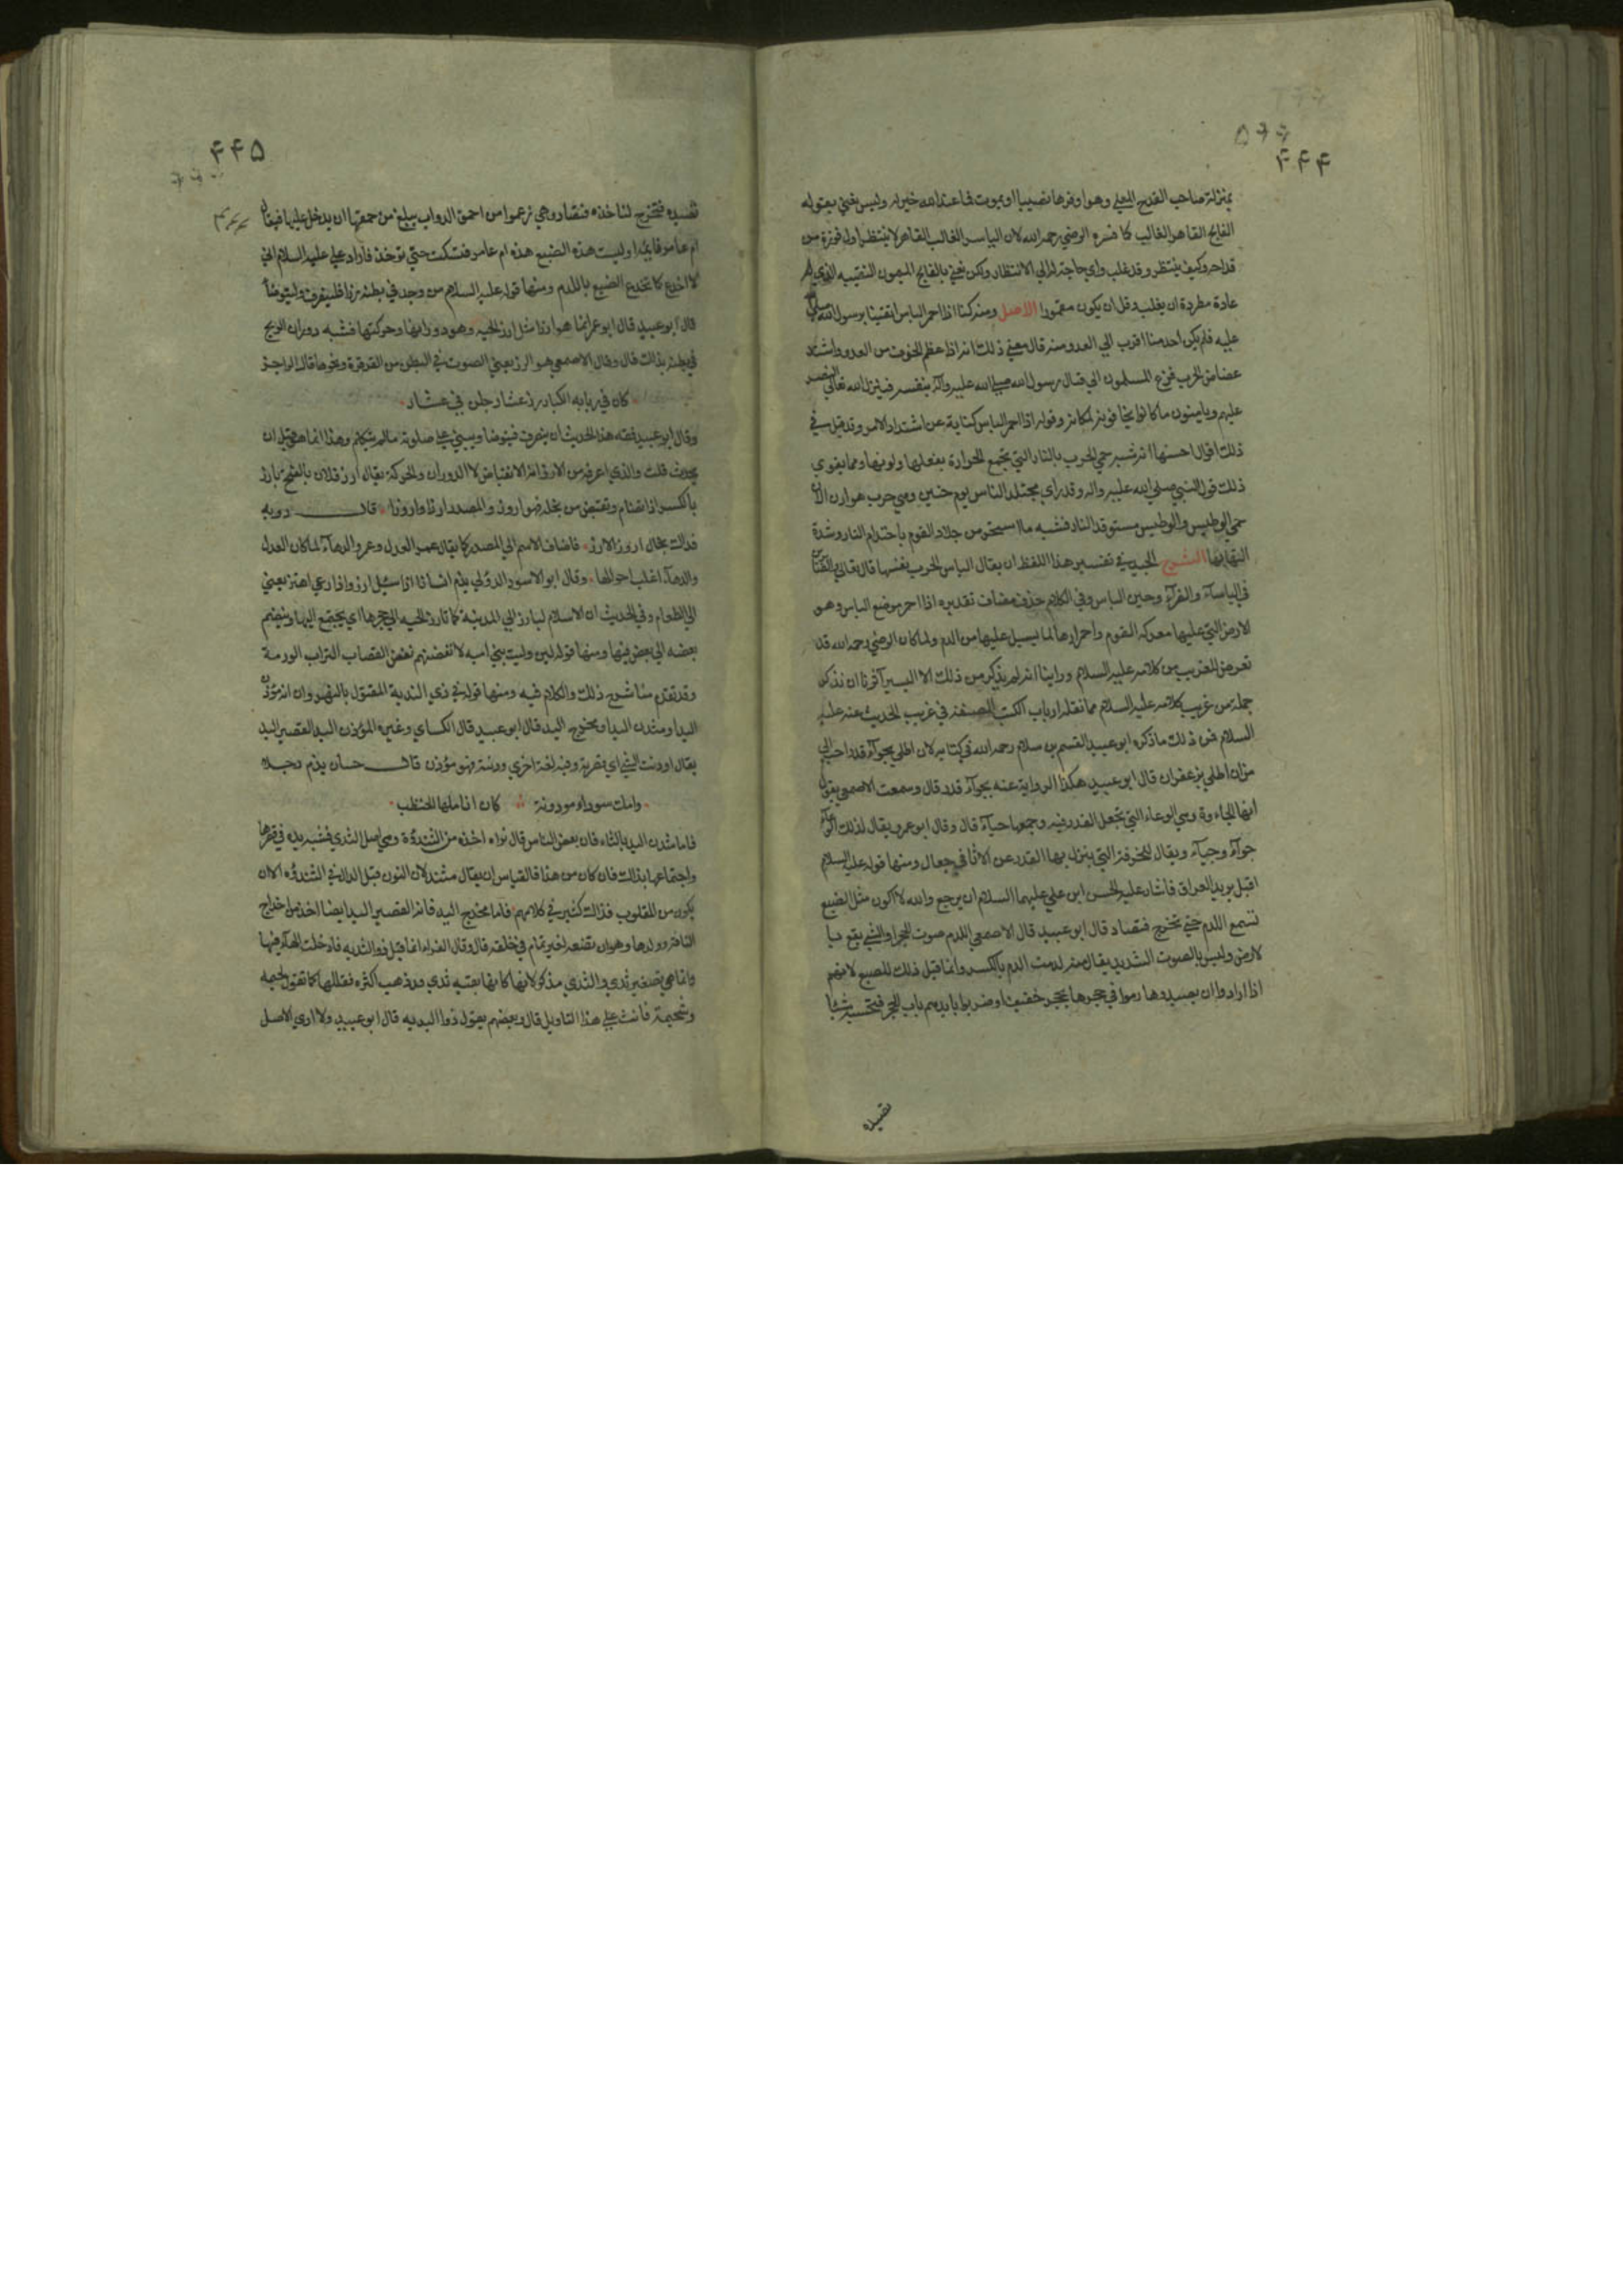 ۵۶۶
۴۴۴
بمنزلة صاحب القدح المعلى وهو اوفرها نصيبا او يموت فما عند الله خير له وليس يعني بقوله
الفالج القاهر الغالب كما فسره الرضي رحمه الله لان الياسر الغالب القاهر لا ينتظر اول فوزة من
قداحه وكيف ينتظر وقد غلب واي حاجة له الى الانتظار ولكن يعني بالفالج الميمون النقيبة الذي له
عادة مطردة ان يغلب وقل ان يكون مقمورا الاصل ومنه كنا اذا احمر الباس اتقينا برسول الله صلى الله
عليه فلم يكن احد منا اقرب الى العدو منه قال معنى ذلك انه اذا عظم الخوف من العدو واشتد
عضاض الحرب فزع المسلمون الى قتال رسول الله صلى الله عليه واله بنفسه فينزل الله تعالى النصر
عليهم ويامنون ما كانوا يخافونه بمكانه وقوله اذا احمر الباس كناية عن اشتداد الامر وقد قيل في
ذلك اقوال احسنها انه شبه حمي الحرب بالنار التي تجمع الحرارة بفعلها ولونها ومما يقوي
ذلك قول النبي صلى الله عليه واله وقد راى مجتلد الناس يوم حنين وهي حرب هوازن الان
حمي الوطيس والوطيس مستوقد النار فشبه ما استحر من جلاد القوم باحتدام النار وشدة
التهابها الشرح الجيد في تفسير هذا اللفظ ان يقال الباس الحرب نفسها قال تعالى والصابرين
في الباساء والضراء وحين الباس وفي الكلام حذف مضاف تقديره اذا احمر موضع الباس وهو
الارض التي عليها معركة القوم واحمرارها لما يسيل عليها من الدم ولما كان الرضي رحمه الله قد
تعرض للغريب من كلامه عليه السلام وراينا انه لم يذكر من ذلك الا اليسير آثرنا ان نذكر
جملة من غريب كلامه عليه السلام مما نقله ارباب الكتب المصنفة في غريب الحديث عنه عليه
السلام فمن ذلك ما ذكره ابو عبيد القسم بن سلام رحمه الله في كتابه لان اطلي بجواء قدر احب الي
من ان اطلي بزعفران قال ابو عبيد هكذا الرواية عنه بجواء قدر قال وسمعت الاصمعي يقول
انما هي الجئاوة وهي الوعاء التي تجعل القدر فيه وجمعها جياء قال وقال ابو عمرو يقال لذلك الوعاء
جواء وجياء ويقال للخرقة التي ينزل بها القدر عن الاثافي جعال ومنها قوله عليه السلام
اقبل يريد العراق فاشار عليه الحسن ابن علي عليهما السلام ان يرجع والله لا اكون مثل الضبع
تسمع اللدم حتى تخرج فتصاد قال ابو عبيد قال الاصمعي اللدم صوت الحجر او الشيء يقع با
لارض وليس بالصوت الشديد يقال منه لدمت الدم بالكسر وانما قيل ذلك للضبع لانهم
اذا ارادوا ان يصيدوها رموا في جحرها بحجر خفيف او ضربوا بايديهم باب الجحر فتحسبه شيئا
تصيده
۴۴۵
تصيده فتخرج لتاخذه فتصاد وهي زعموا من احمق الدواب بلغ من حمقها ان يدخل عليها فيقال
ام عامر نائمة او ليست هذه الضبع هذه ام عامر فتسكت حتى توخذ فاراد علي عليه السلام اني
لا اخدع كما تخدع الضبع باللدم ومنها قوله عليه السلام من وجد في بطنه رزا فلينصرف وليتوضأ
قال ابو عبيد قال ابو عمر انما هو ارزا مثل ارز الحية وهو دورانها وحركتها فشبه دوران الريح
في بطنه بذلك قال وقال الاصمعي هو الرز يعني الصوت في البطن من القرقرة ونحوها قال الراجز
كان في ربابه الكبار رز عشار جلن في عشار
وقال ابو عبيد فقه هذا الحديث ان ينصرف فيتوضا ويبني على صلوته ما لم يتكلم وهذا انما هو قبل ان
يحدث قلت والذي اعرفه من الارز انه الانقباض لا الدوران والحركة يقال ارز فلان بالفتح يارز
بالكسر اذا تضام وتقبض من بخله فهو اروز والمصدر ارزا واروزا قال روبه
فذاك بخال اروز الارز فاضاف الاسم الى المصدر كما يقال عمر العدل وعمرو الدهاء لما كان العدل
والدهاء اغلب احوالهما وقال ابو الاسود الدؤلي يذم انسانا اذا سئل ارز واذا دعي اهتز يعني
الى الطعام وفي الحديث ان الاسلام ليارز الى المدينة كما تارز الحية الى جحرها اي يجتمع اليها وينضم
بعضه الى بعض فيها ومنها قوله لئن وليت بني اميه لانفضنهم نفض القصاب التراب الوذمة
وقد تقدم منا شرح ذلك والكلام فيه ومنها قوله في ذي الثدية المقتول بالنهروان انه مؤذن
اليد او مثدن اليد او مخدج اليد قال ابو عبيد قال الكساي وغيره المؤدن اليد القصير اليد
يقال اودنت الشيء اي قصرته وفيه لغة اخرى ودنته فهو مؤدن قال حسان يذم رجلا
وامك سوداء مودونة كان اناملها الحنظب
فاما مثدن اليد بالثاء فان بعض الناس قال نراه اخذه من الثندؤة وهي اصل الثدي فشبه يده في قصرها
واجتماعها بذلك فان كان من هذا فالقياس ان يقال مثند لان النون قبل الدال في الثندؤه الا ان
يكون من المقلوب فذاك كثير في كلامهم فاما مخدج اليد فانه القصير اليد ايضا اخذ من اخداج
الناقة ولدها وهو ان تضعه لغير تمام في خلقه قال وقال الفراء انما قيل ذو الثديه فادخلت الهاء فيها
وانما هي تصغير ثدي والثدي مذكر لانها كانها بقية ثدي قد ذهب اكثره فقللها كما تقول لحيمه
وشحيمة فانث على هذا التاويل قال وبعضهم يقول ذو اليديه قال ابو عبيد ولا ارى الاصل